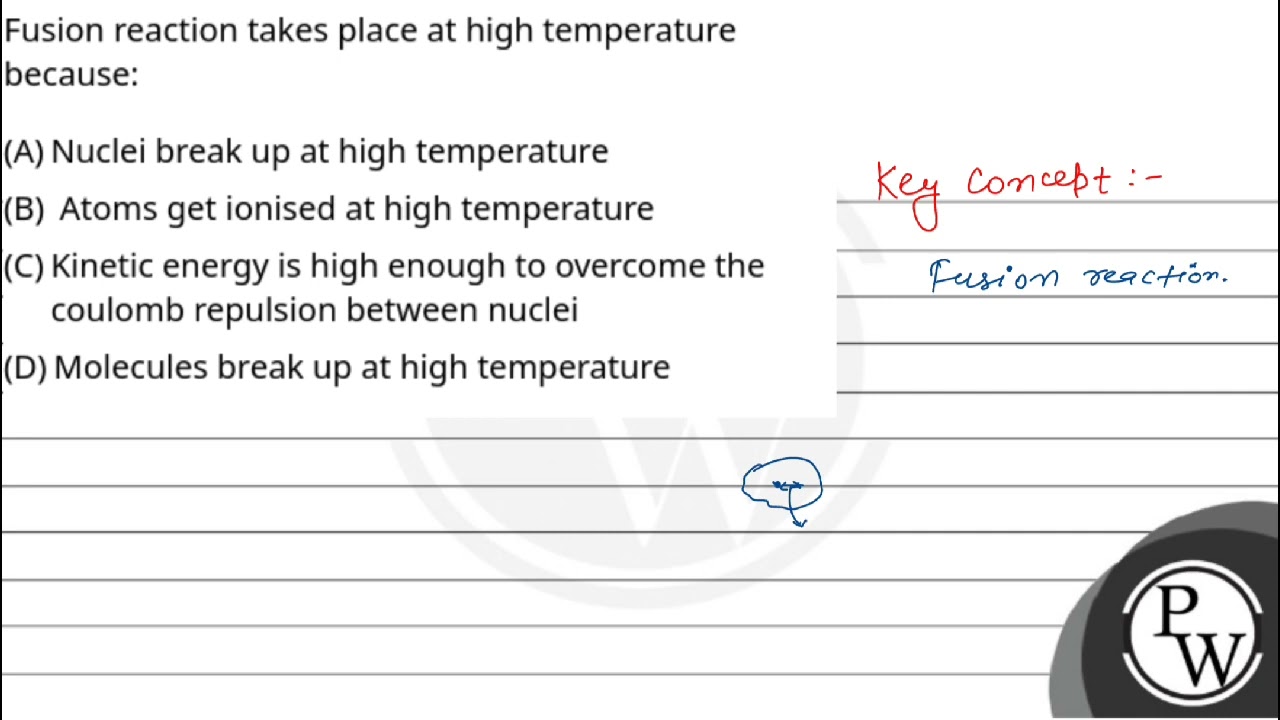 Fusion reaction takes place at high temperature
because:
(A) Nuclei break up at high temperature
(B) Atoms get ionised at high temperature
(C) Kinetic energy is high enough to overcome the
coulomb repulsion between nuclei
(D) Molecules break up at high temperature
Key Concept :-
Fusion reaction.
P
W